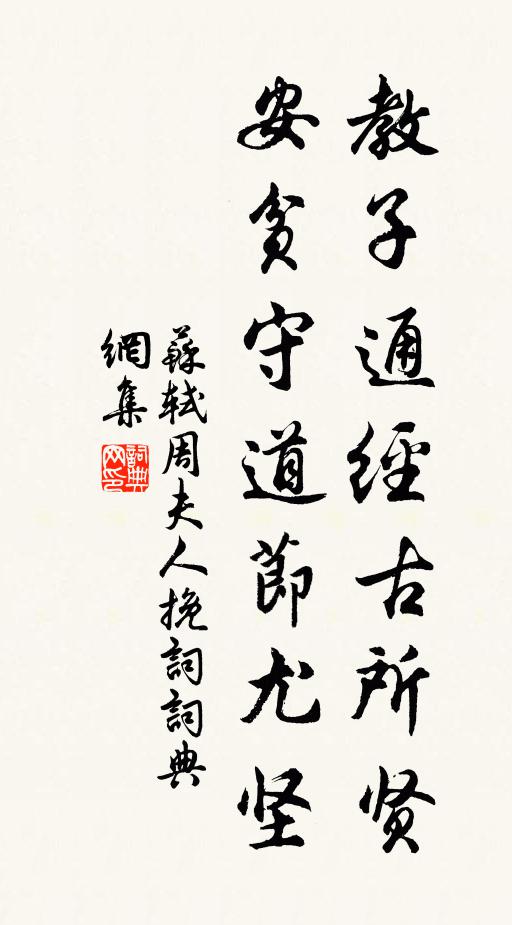 教子通經古所贤
安貧守道節尤坚
蘇軾周夫人挽詞詞典
網集
詞典网印